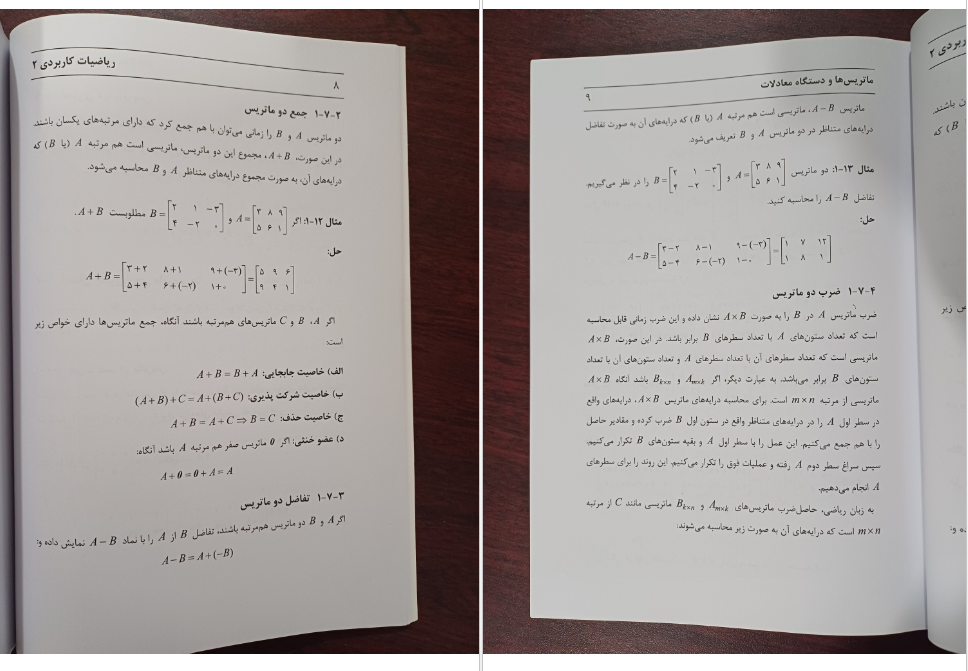 ریاضیات کاربردی ۲
۸
۱-۷-۲ جمع دو ماتریس
دو ماتریس A و B را زمانی می‌توان با هم جمع کرد که دارای مرتبه‌های یکسان باشند.
در این صورت، A+B، مجموع این دو ماتریس، ماتریسی است هم مرتبه A (یا B) که
درایه‌های آن، به صورت مجموع درایه‌های متناظر A و B محاسبه می‌شود.
مثال ۱۲-۱: اگر A=[۳ ۸ ۹ / ۵ ۶ ۱] و B=[۲ ۱ -۳ / ۴ -۲ ۰] مطلوبست A+B.
حل:
A+B=[۳+۲ ۸+۱ ۹+(-۳) / ۵+۴ ۶+(-۲) ۱+۰]=[۵ ۹ ۶ / ۹ ۴ ۱]
اگر A، B و C ماتریس‌های هم‌مرتبه باشند آنگاه، جمع ماتریس‌ها دارای خواص زیر
است:
الف) خاصیت جابجایی: A+B=B+A
ب) خاصیت شرکت پذیری: (A+B)+C=A+(B+C)
ج) خاصیت حذف: A+B=A+C⇒B=C
د) عضو خنثی: اگر 0 ماتریس صفر هم مرتبه A باشد آنگاه:
A+0=0+A=A
۱-۷-۳ تفاضل دو ماتریس
اگر A و B دو ماتریس هم‌مرتبه باشند، تفاضل B از A را با نماد A-B نمایش داده و:
A-B=A+(-B)
ماتریس‌ها و دستگاه معادلات
۹
ماتریس A-B، ماتریسی است هم مرتبه A (یا B) که درایه‌های آن به صورت تفاضل
درایه‌های متناظر در دو ماتریس A و B تعریف می‌شود.
مثال ۱۳-۱: دو ماتریس A=[۳ ۸ ۹ / ۵ ۶ ۱] و B=[۲ ۱ -۳ / ۴ -۲ ۰] را در نظر می‌گیریم.
تفاضل A-B را محاسبه کنید.
حل:
A-B=[۳-۲ ۸-۱ ۹-(-۳) / ۵-۴ ۶-(-۲) ۱-۰]=[۱ ۷ ۱۲ / ۱ ۸ ۱]
۱-۷-۴ ضرب دو ماتریس
ضرب ماتریس A در B را به صورت A×B نشان داده و این ضرب زمانی قابل محاسبه
است که تعداد ستون‌های A با تعداد سطرهای B برابر باشد. در این صورت، A×B
ماتریسی است که تعداد سطرهای آن با تعداد سطرهای A و تعداد ستون‌های آن با تعداد
ستون‌های B برابر می‌باشد. به عبارت دیگر، اگر Am×k و Bk×n باشد آنگاه A×B
ماتریسی از مرتبه m×n است. برای محاسبه درایه‌های ماتریس A×B، درایه‌های واقع
در سطر اول A را در درایه‌های متناظر واقع در ستون اول B ضرب کرده و مقادیر حاصل
را با هم جمع می‌کنیم. این عمل را با سطر اول A و بقیه ستون‌های B تکرار می‌کنیم.
سپس سراغ سطر دوم A رفته و عملیات فوق را تکرار می‌کنیم. این روند را برای سطرهای
A انجام می‌دهیم.
به زبان ریاضی، حاصل‌ضرب ماتریس‌های Am×k و Bk×n ماتریسی مانند C از مرتبه
m×n است که درایه‌های آن به صورت زیر محاسبه می‌شوند: